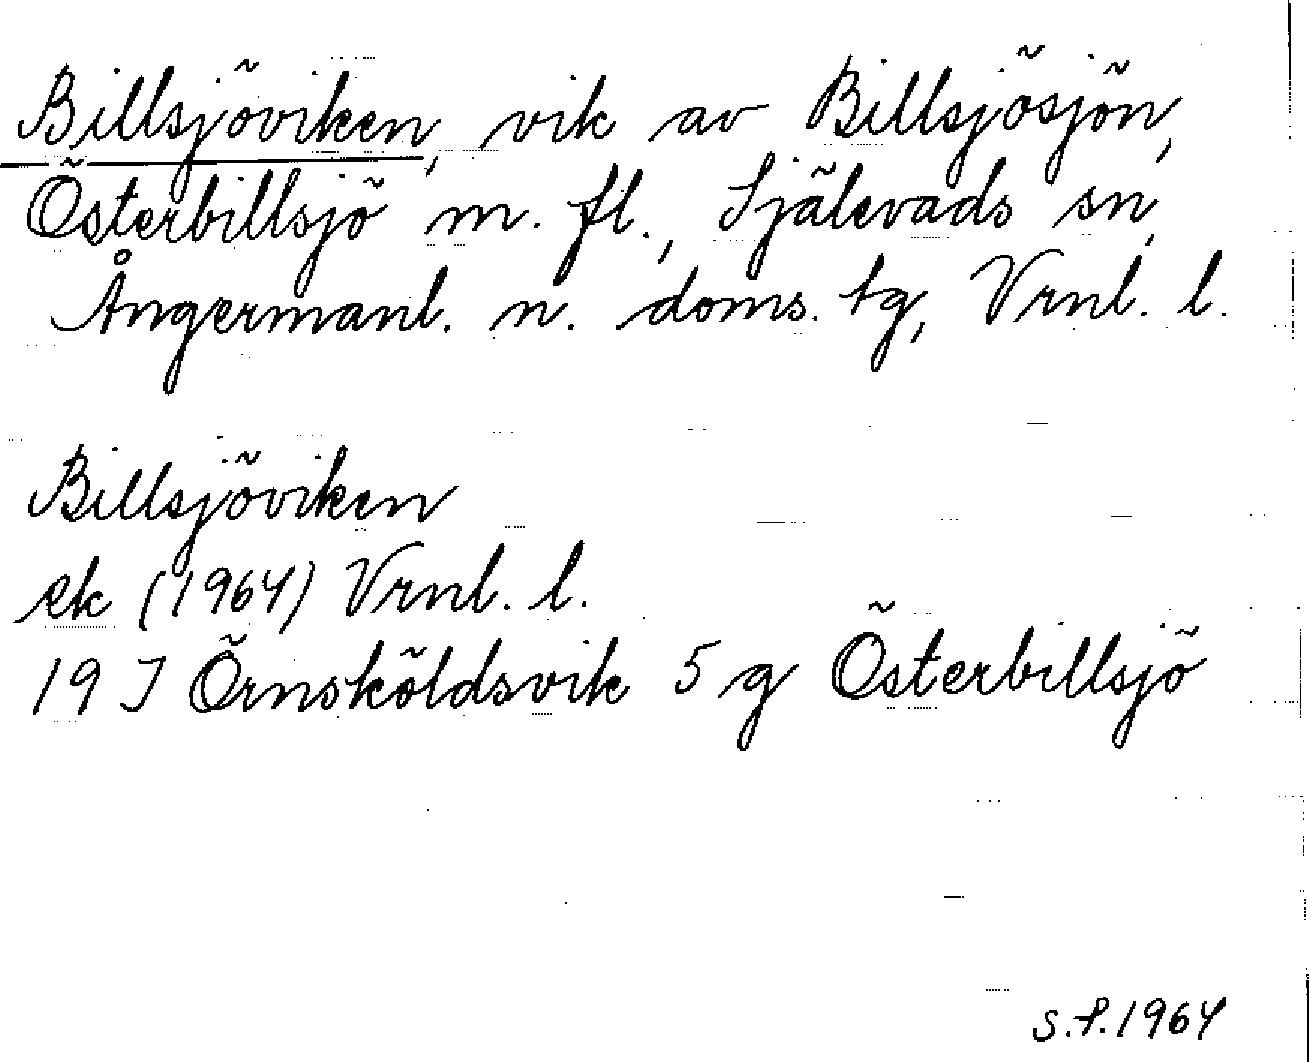 Billsjöviken, vik av Billsjösjön,
Österbillsjö m. fl., Själevads sn,
Ångermanl. n. doms. tg, Vrnl. l.
Billsjöviken
ek (1964) Vrnl. l.
19 J Örnsköldsvik 5 g Österbillsjö
S.F. 1964